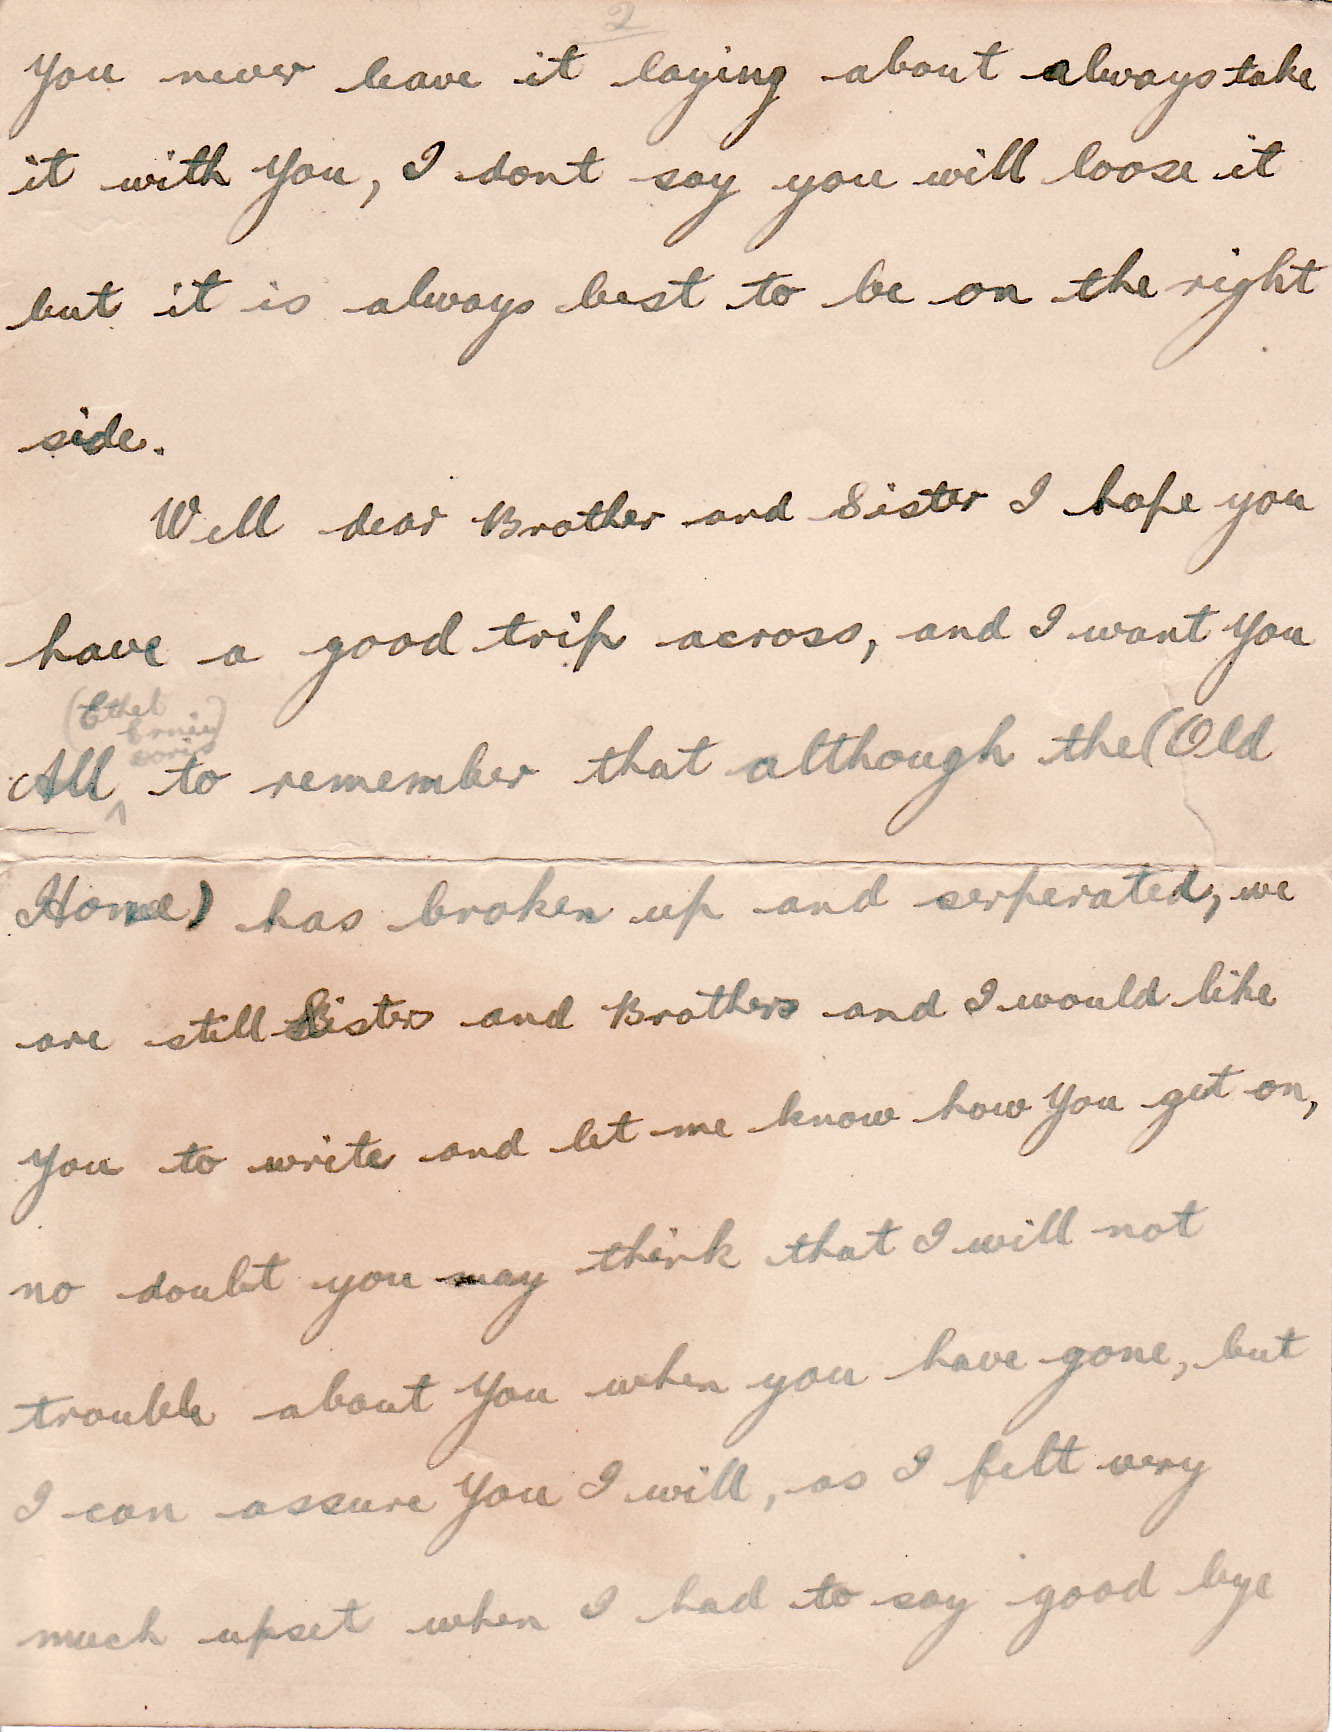 2
you never leave it laying about always take
it with you, I dont say you will loose it
but it is always best to be on the right
side.
Well dear Brother and Sister I hope you
have a good trip across, and I want you
(Ethel
Ernie)
Doris
All ^ to remember that although the (Old
Home) has broken up and serperated, we
are still Sisters and Brothers and I would like
you to write and let me know how you get on,
no doubt you may think that I will not
trouble about you when you have gone, but
I can assure you I will, as I felt very
much upset when I had to say good bye